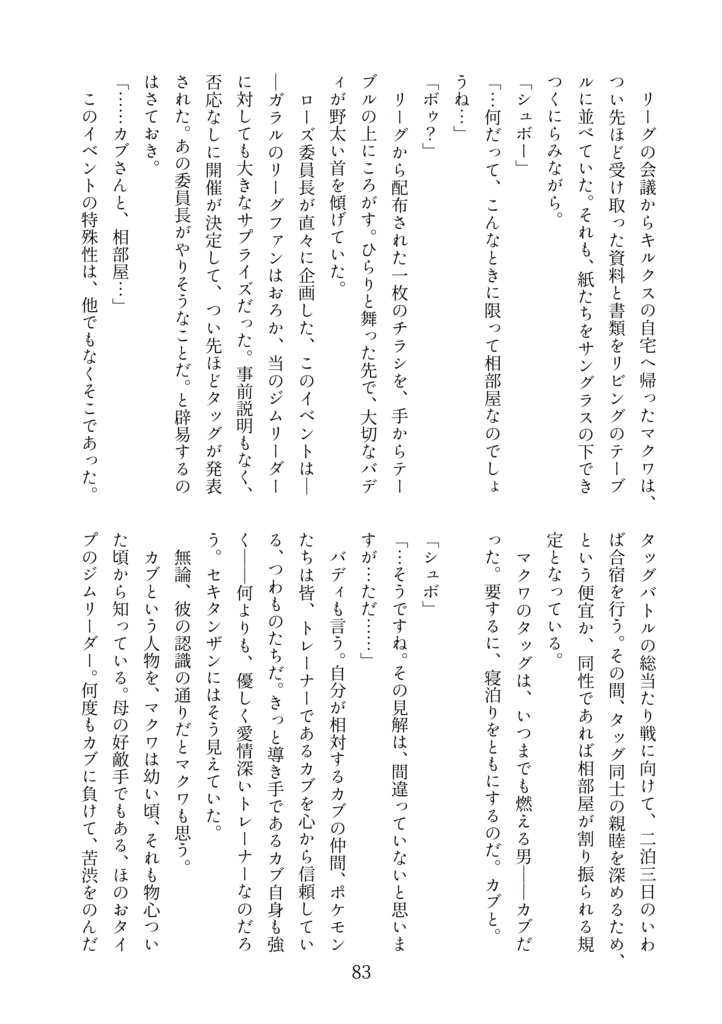 リーグの会議からキルクスの自宅へ帰ったマクワは、
つい先ほど受け取った資料と書類をリビングのテーブ
ルに並べていた。それも、紙たちをサングラスの下でき
つくにらみながら。
「シュボー」
「…何だって、こんなときに限って相部屋なのでしょ
うね…」
「ボゥ？」
　リーグから配布された一枚のチラシを、手からテー
ブルの上にころがす。ひらりと舞った先で、大切なバデ
ィが野太い首を傾げていた。
　ローズ委員長が直々に企画した、このイベントは―
―ガラルのリーグファンはおろか、当のジムリーダー
に対しても大きなサプライズだった。事前説明もなく、
否応なしに開催が決定して、つい先ほどタッグが発表
された。あの委員長がやりそうなことだ。と辟易するの
はさておき。
「……カブさんと、相部屋…」
　このイベントの特殊性は、他でもなくそこであった。
タッグバトルの総当たり戦に向けて、二泊三日のいわ
ば合宿を行う。その間、タッグ同士の親睦を深めるため、
という便宜か、同性であれば相部屋が割り振られる規
定となっている。
　マクワのタッグは、いつまでも燃える男――カブだ
った。要するに、寝泊りをともにするのだ。カブと。
「シュボ」
「…そうですね。その見解は、間違っていないと思いま
すが…ただ……」
　バディも言う。自分が相対するカブの仲間、ポケモン
たちは皆、トレーナーであるカブを心から信頼してい
る、つわものたちだ。きっと導き手であるカブ自身も強
く――何よりも、優しく愛情深いトレーナーなのだろ
う。セキタンザンにはそう見えていた。
　無論、彼の認識の通りだとマクワも思う。
　カブという人物を、マクワは幼い頃、それも物心つい
た頃から知っている。母の好敵手でもある、ほのおタイ
プのジムリーダー。何度もカブに負けて、苦渋をのんだ
83